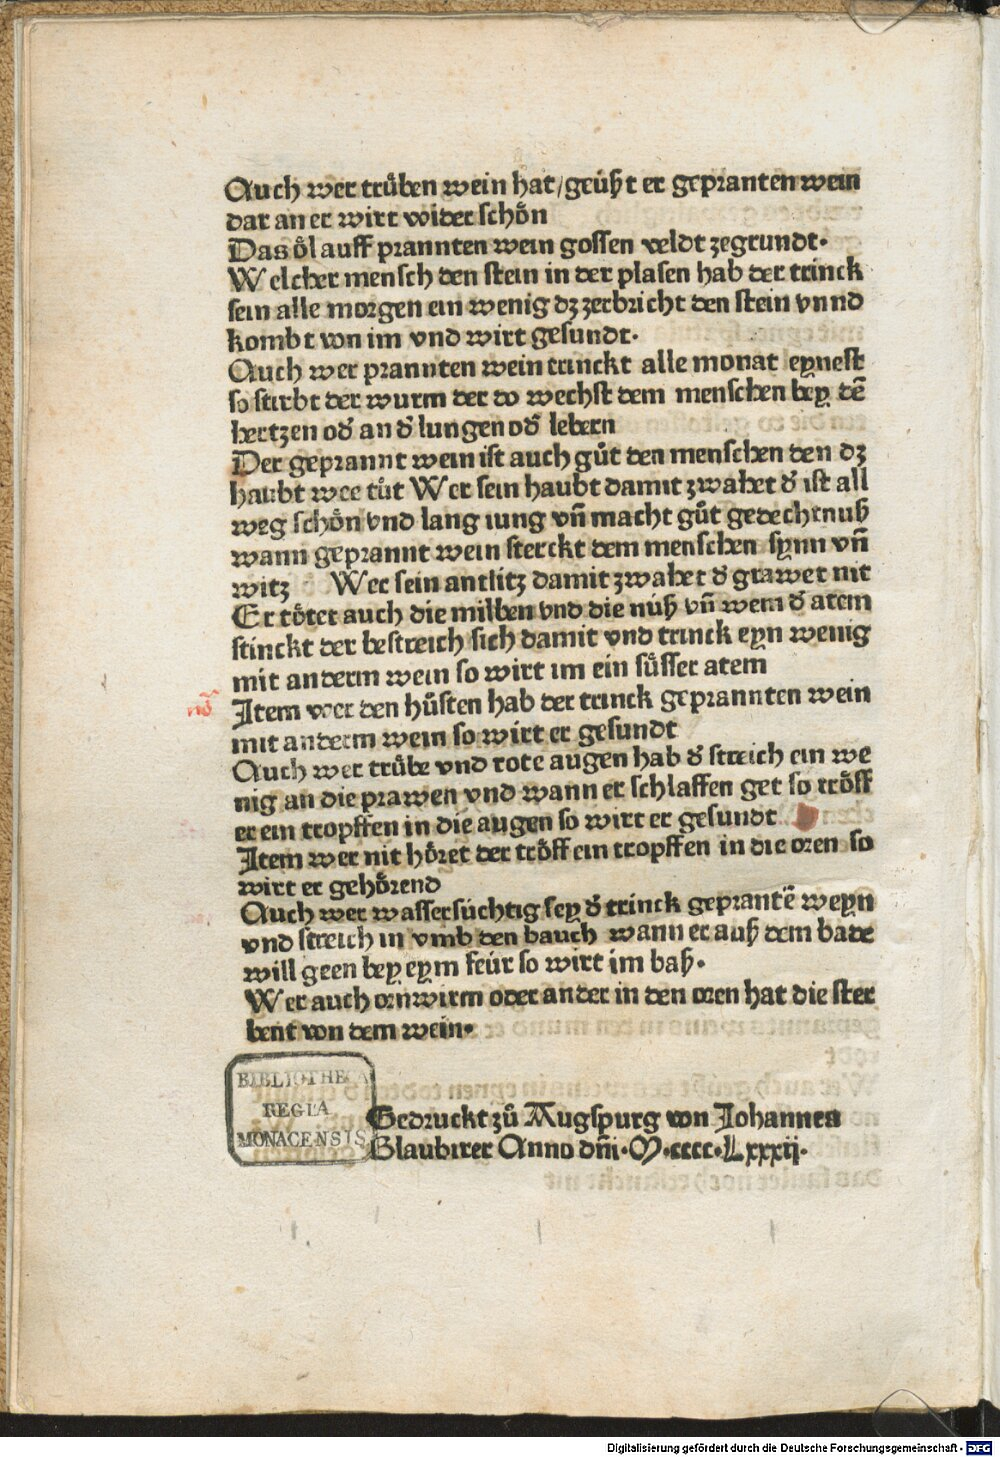 Auch wer trüben wein hat/geüßt er gepranten wein
dar an er wirt wider schön
Das öl auff prannten wein gossen veldt zegrundt.
Welcher mensch den stein in der plasen hab der trinck
sein alle morgen ein wenig dz zerbricht den stein vnnd
kombt von im vnd wirt gesundt.
Auch wer prannten wein trinckt alle monat eynest
so stirbt der wurm der do wechst dem menschen bey dē
hertzen od̛ an d̛ lungen od̛ lebern
Der geprannt wein ist auch gůt den menschen den dz
haubt wee tůt Wer sein haubt damit zwahet d̛ ist all
weg schön vnd lang iung vn̄ macht gůt gedechtnuß
wann geprannt wein sterckt dem menschen synn vn̄
witz Wer sein antlitz damit zwahet d̛ grawet nit
Er tötet auch die milben vnd die nüß vn̄ wem d̛ atem
stinckt der bestreich sich damit vnd trinck eyn wenig
mit anderm wein so wirt im ein süsser atem
Item wer den hůsten hab der trinck geprannten wein
mit anderm wein so wirt er gesundt
Auch wer trübe vnd rote augen hab d̛ streich ein we
nig an die prawen vnd wann er schlaffen get so tröff
er ein tropffen in die augen so wirt er gesundt
Item wer nit höret der tröff ein tropffen in die oren so
wirt er gehörend
Auch wer wassersüchtig sey d̛ trinck geprantē weyn
vnd streich in vmb den bauch wann er auß dem bade
will geen bey eym feür so wirt im baß.
Wer auch ornwirm oder ander in den oren hat die ster
bent von dem wein.
BIBLIOTHECA
REGIA
MONACENSIS
Gedruckt zů Augspurg von Johannes
Blaubirer Anno dm̄.M.cccc.Lxxxij.
Digitalisierung gefördert durch die Deutsche Forschungsgemeinschaft - DFG